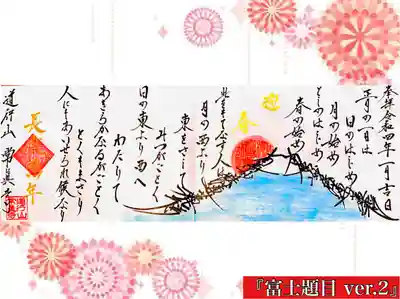 奉拝 令和四年一月吉日
正月の一日は
日のはじめ
月の始め
としのはじめ
春の始め
迎春
此をもてなす人は
月の西より
東をさして
みつがごとく
日の東より西へ
わたりて
あきらかなるがごとく
とくもまさり
人にもあいせられ候なり
『富士題目 ver.2』